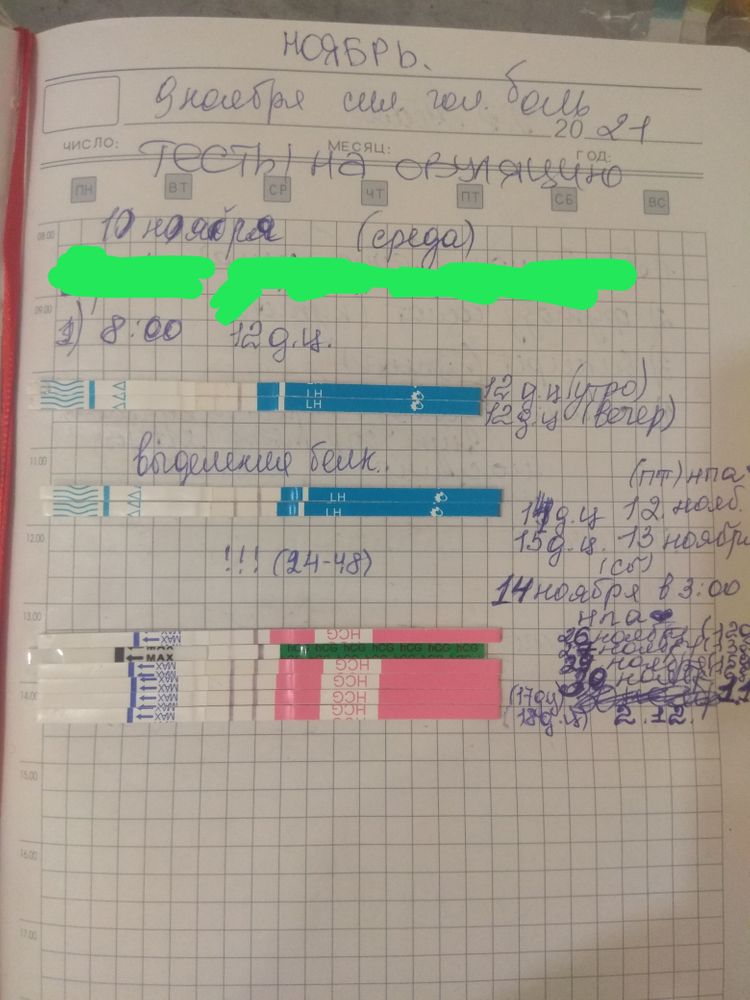 НОЯБРЬ.
9 ноября сил. гол. боль
20 21
ЧИСЛО: МЕСЯЦ: ГОД:
ТЕСТЫ на овуляцию
ПН ВТ СР ЧТ ПТ СБ ВС
08:00 10 ноября (среда)
09:00
1) 8:00 12 д.ц.
LH 12 д.ц (утро)
LH 12 д.ц (вечер)
11.00 выделения белк..
(пт) нпа
LH 14 д.ц 12 нояб.
12.00 LH 15 д.ц. 13 ноября
(сб)
!!! (24-48)
14 ноября в 3:00
13.00 нпа
MAX HCG 26 ноября
MAX HCG HCG HCG HCG HCG HCG ноября
MAX HCG ноября
MAX HCG ноября
14.00 MAX HCG (17дц)
MAX HCG (18д.ц) 2.12.
15.00
16.00
17.00